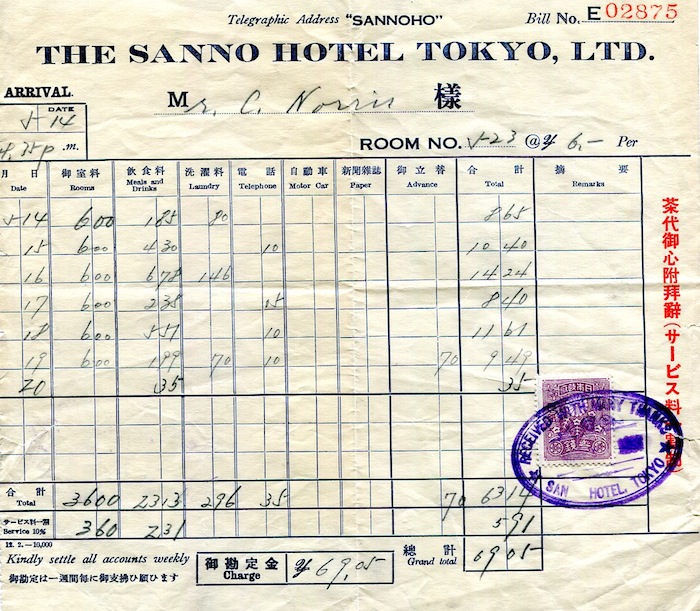 Telegraphic Address "SANNOHO" Bill No. E 02875
THE SANNO HOTEL TOKYO, LTD.
ARRIVAL.
Mr. C. Norris 様
DATE
5-14
4.35 p.m.
ROOM NO. 523 @ ¥ 6.- Per
月日 御室料 飲食料 洗濯料 電話 自動車 新聞雑誌 御立替 合計 摘要
Date Rooms Meals and Drinks Laundry Telephone Motor Car Paper Advance Total Remarks
5-14 6 00 1 85 80 8 65
15 6 00 4 30 10 10 40
16 6 00 6 78 1 46 14 24
17 6 00 2 35 15 8 40
18 6 00 5 51 10 11 61
19 6 00 1 99 70 10 70 9 49
20 35 35
合計 Total 36 00 23 13 2 96 35 70 63 14
サービス料一割 Service 10% 3 60 2 31 5 91
12. 2.—10,000
Kindly settle all accounts weekly
御勘定は一週間毎に御支拂ひ願ひます
御勘定金 Charge ¥ 69.05
総計 Grand total 69 05
茶代御心附拜辭(サービス料
RECEIVED WITH MANY THANKS
SAN HOTEL, TOKYO